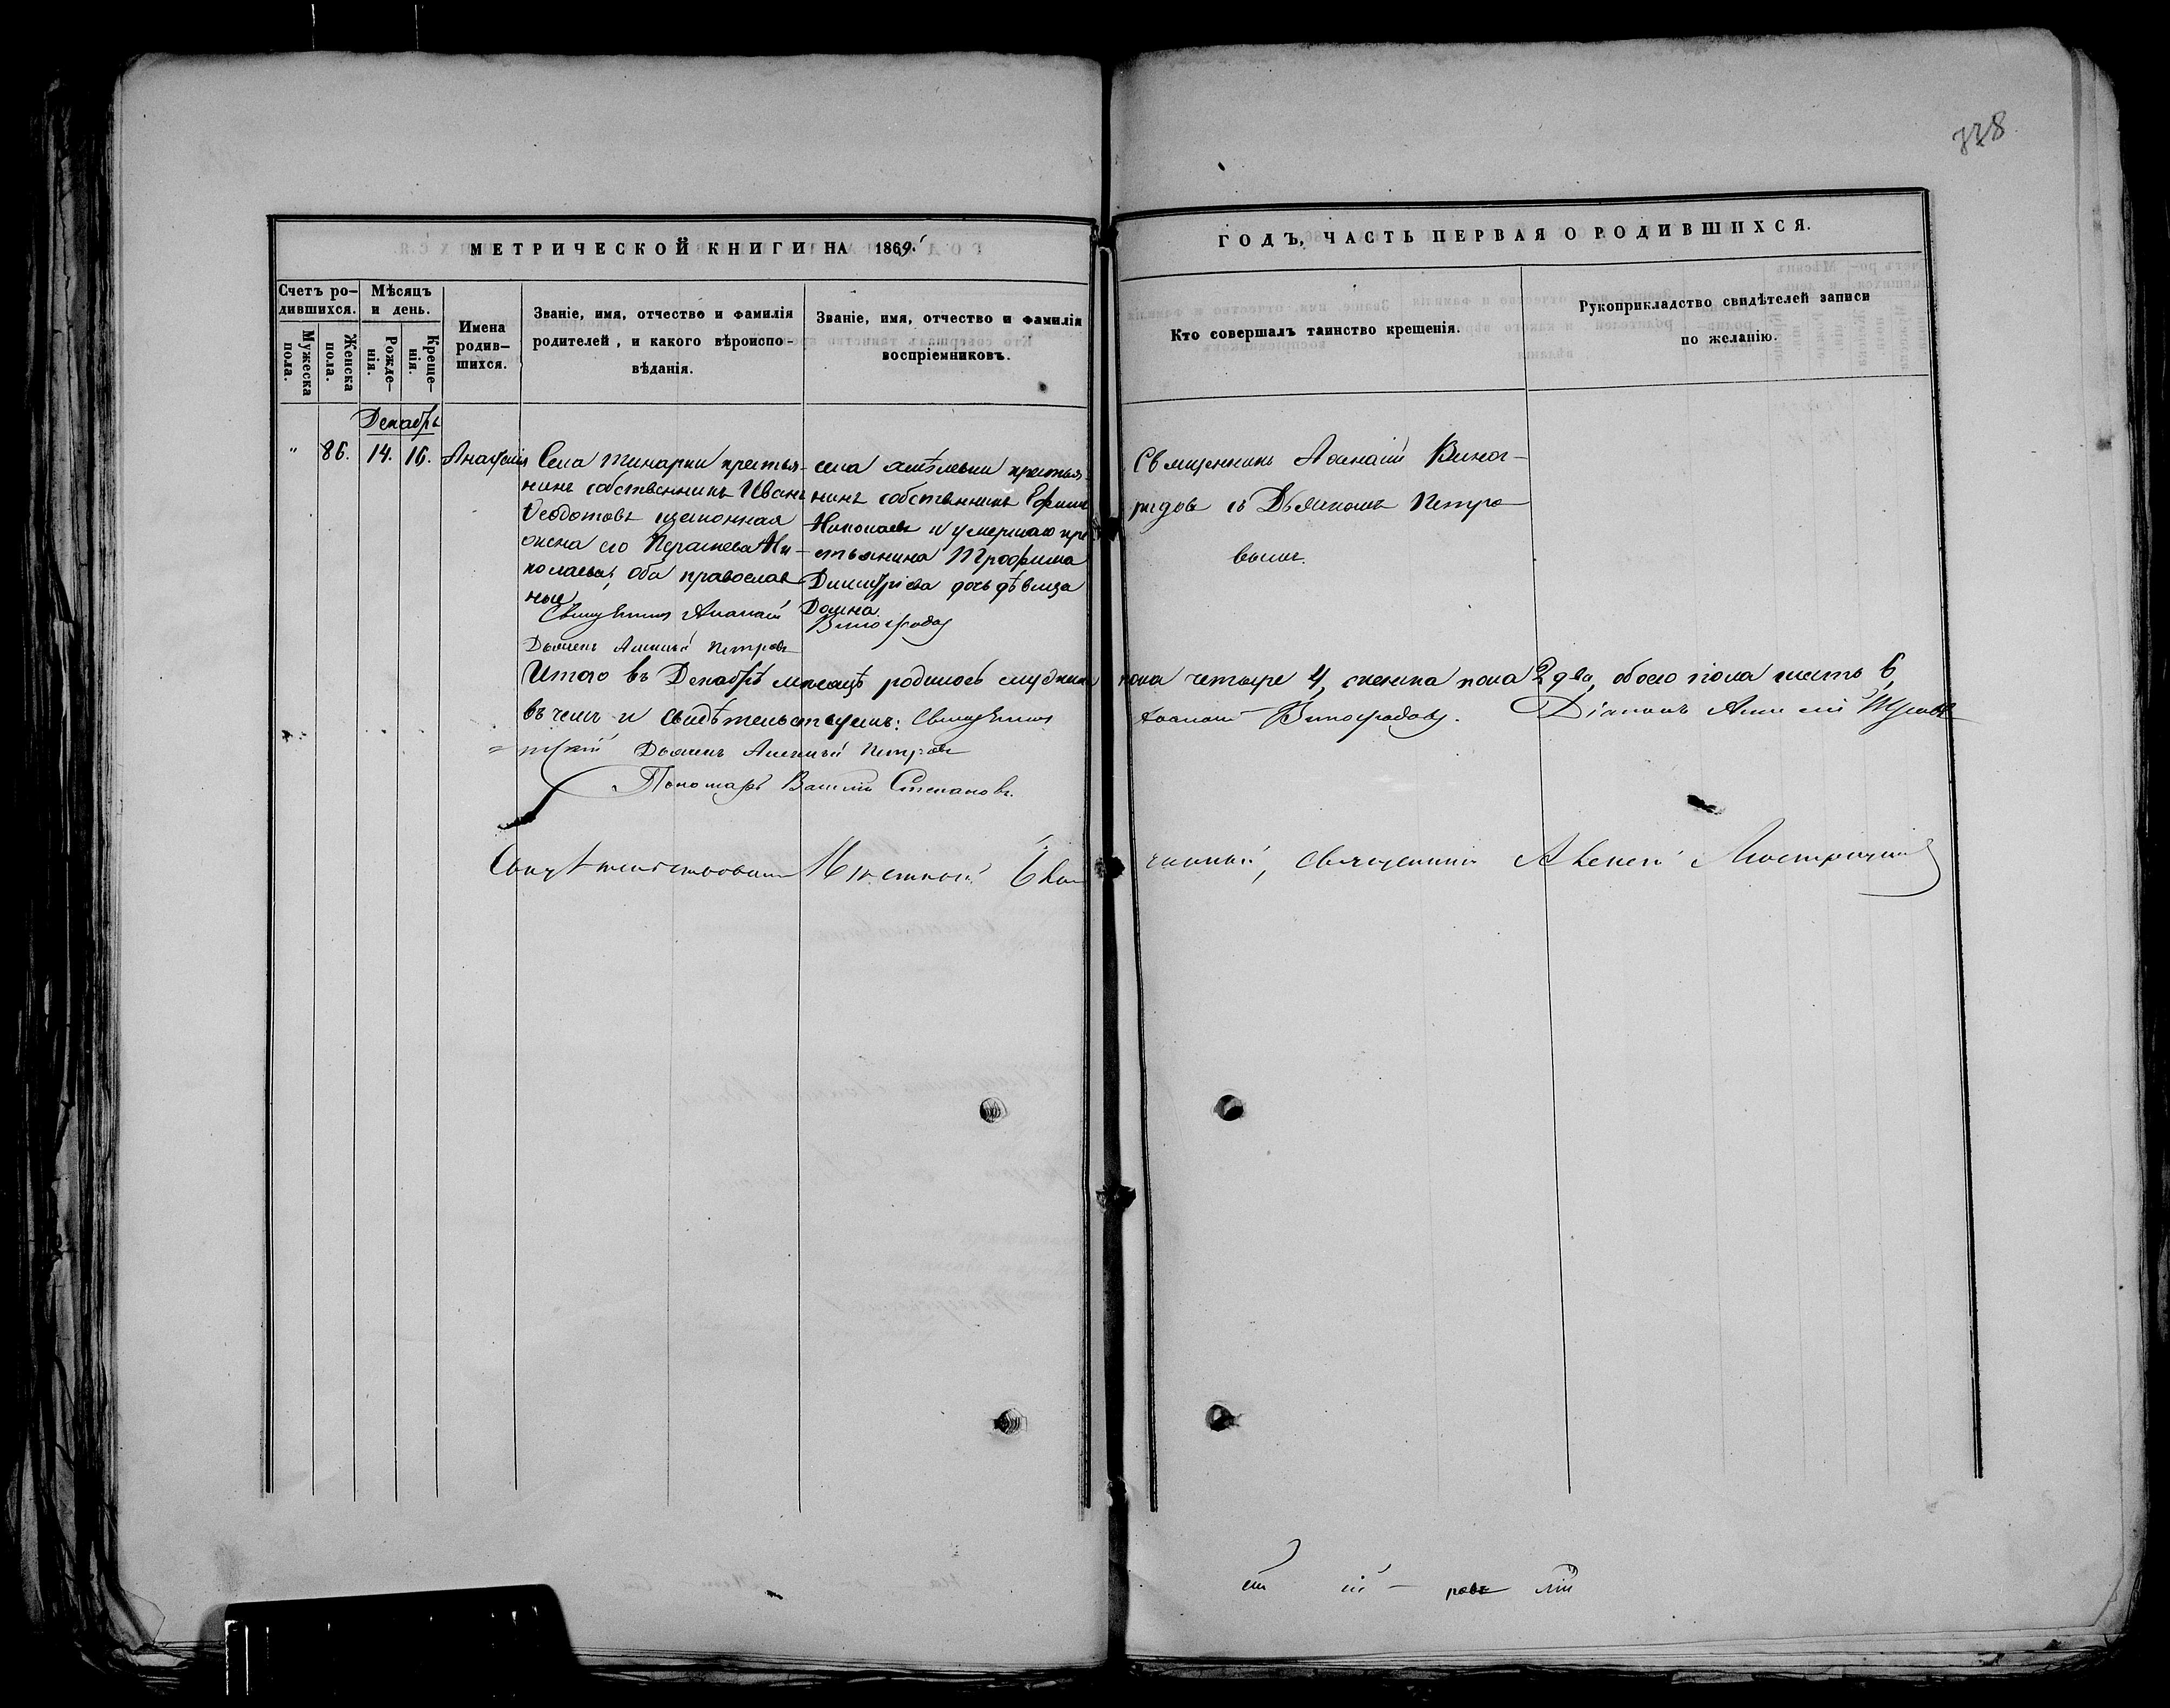 338
МЕТРИЧЕСКОЙ КНИГИ НА 1869.
ГОДЪ, ЧАСТЬ ПЕРВАЯ О РОДИВШИХСЯ.
Счетъ ро-
дившихся.
Мужеска
пола.
Женска
пола.
Мѣсяцъ
и день.
Рожде-
нія.
Креще-
нія.
Имена
родив-
шихся.
Званіе, имя, отчество и фамилія
родителей, и какого вѣроиспо-
вѣданія.
Званіе, имя, отчество и фамилія
воспріемниковъ.
Кто совершалъ таинство крещенія.
Рукоприкладство свидѣтелей записи
по желанію.
Декабрь
" 86. 14. 16.
Села крестья-
нинъ собственникъ Иванъ
Ѳеодотовъ и законная
жена его Ни-
колаева, оба православ
ные
Священникъ
Дьячекъ Алексѣй Петровъ
села крестья-
нинъ собственникъ Ефимъ
Николаевъ и умершаго кре
стьянина Трофима
Димитріева дочь дѣвица
Домна
Виноградовъ
Священникъ Виног-
радовъ съ Дьячкомъ Петро-
вымъ.
Итого въ Декабрѣ мѣсяцѣ родилось мужеска пола четыре 4, женска пола 2 два, обоего пола шесть 6,
въ чемъ и свидѣтельствуемъ: Священникъ Виноградовъ. Діаконъ
Дьячекъ Алексѣй Петровъ
Пономарь Василій Степановъ.
Свидѣтельствовалъ Мѣстный Благо
чинный, священникъ Алексѣй